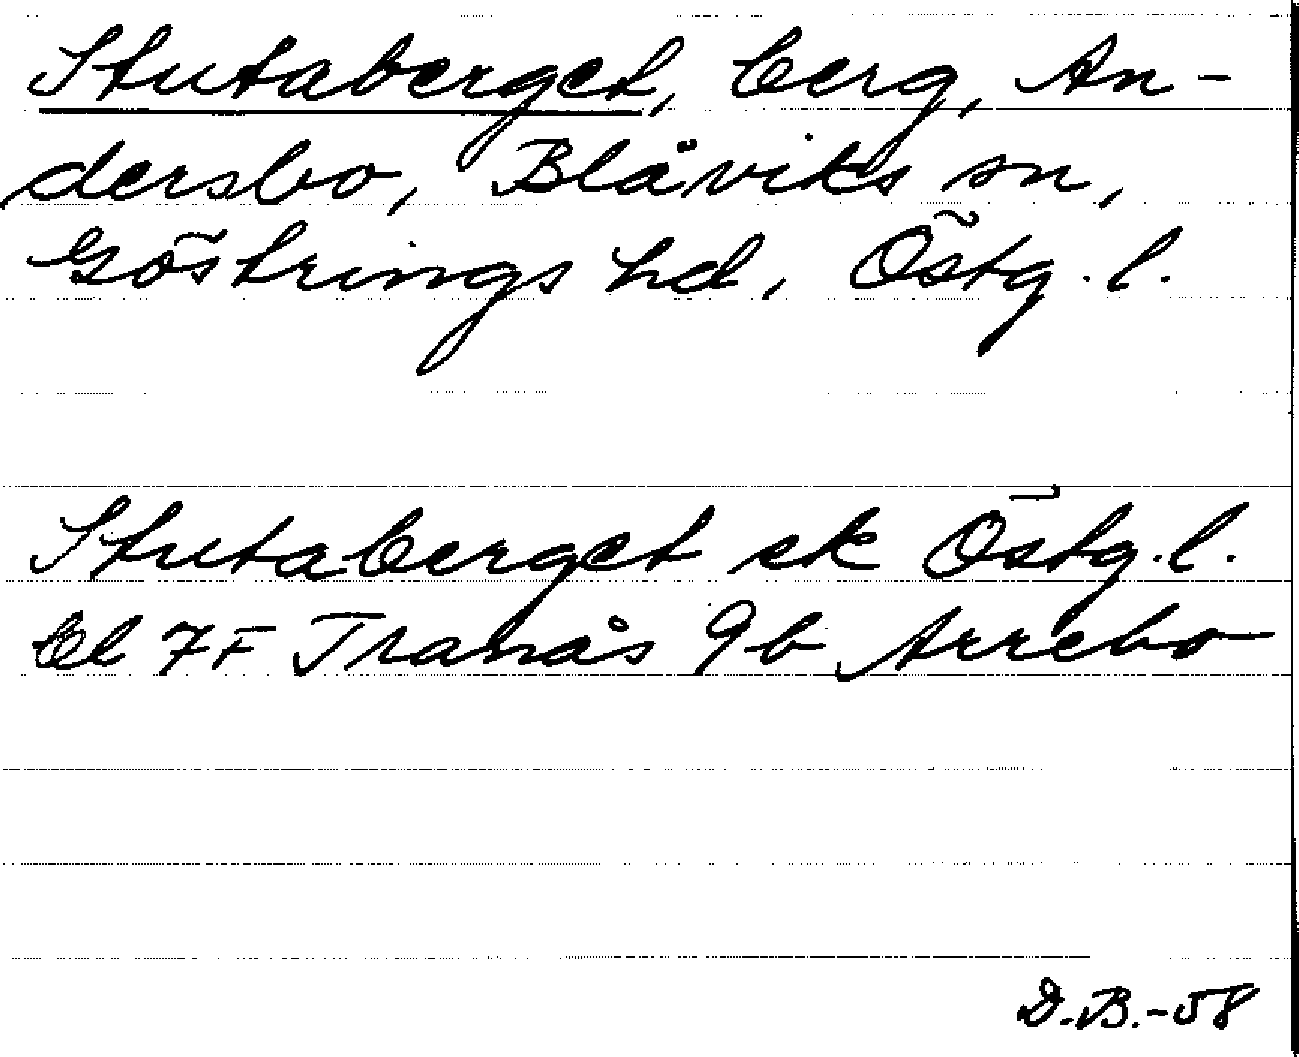 Stutaberget, berg, An-
dersbo, Blåviks sn,
Göstrings hd, Östg. l.
Stutaberget ek Östg. l.
bl 7F Tranås 9b Arrebo
D.B.-58